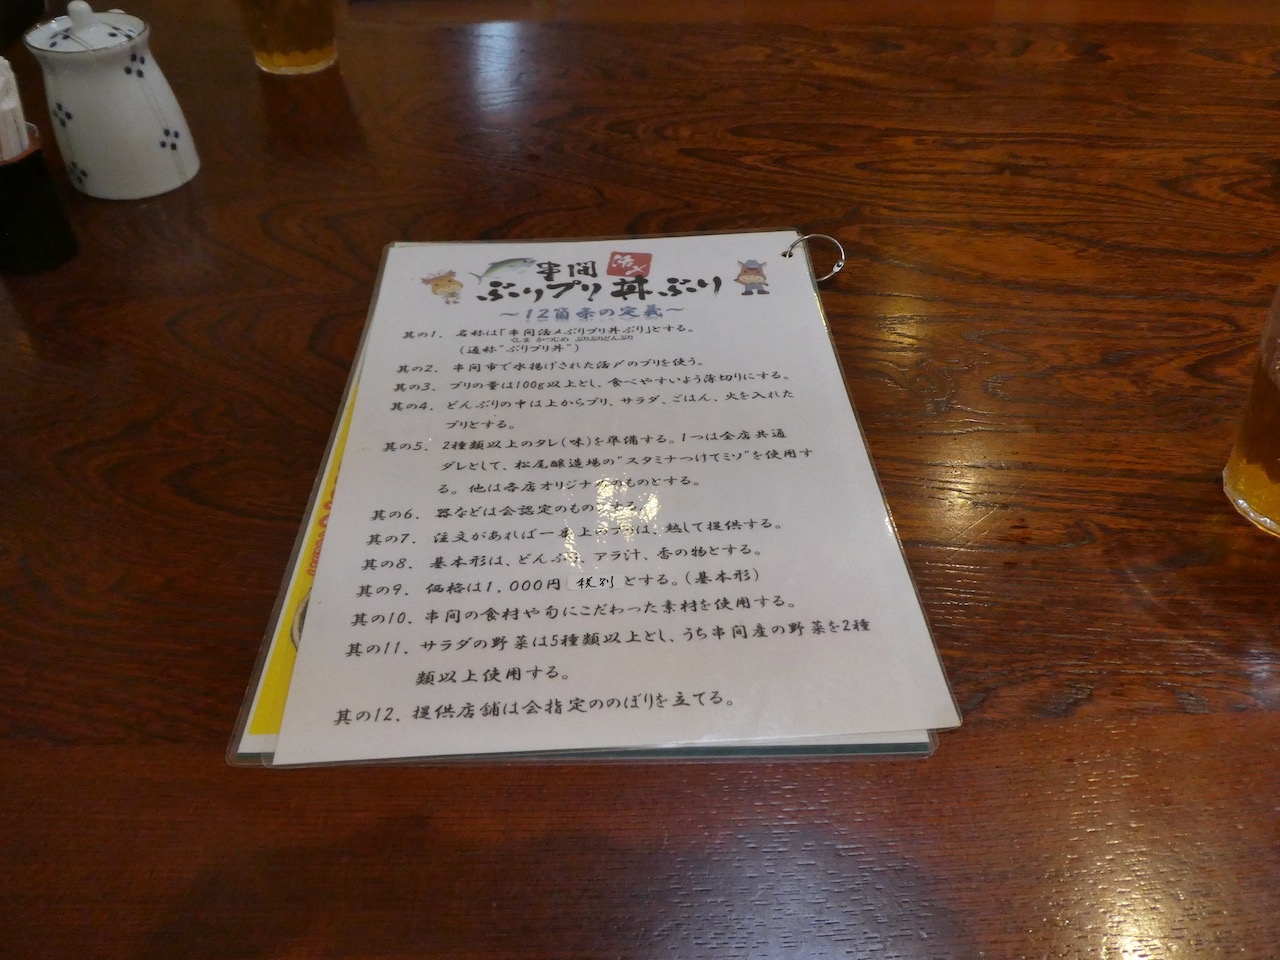 串間 活〆
ぶりプリ丼ぶり
～12箇条の定義～
其の1. 名称は「串間活〆ぶりプリ丼ぶり」とする。
くしま かつじめ ぶりぷりどんぶり
(通称"ぶりプリ丼")
其の2. 串間市で水揚げされた活〆のブリを使う。
其の3. ブリの量は100g以上とし、食べやすいよう薄切りにする。
其の4. どんぶりの中は上からブリ、サラダ、ごはん、火を入れた
ブリとする。
其の5. 2種類以上のタレ(味)を準備する。1つは全店共通
ダレとして、松尾醸造場の"スタミナつけてミソ"を使用す
る。他は各店オリジナ のものとする。
其の6. 器などは会認定のもの する。
其の7. 注文があれば一番上のブリは、熱して提供する。
其の8. 基本形は、どんぶり、アラ汁、香の物とする。
其の9. 価格は1,000円 税別 とする。(基本形)
其の10. 串間の食材や旬にこだわった素材を使用する。
其の11. サラダの野菜は5種類以上とし、うち串間産の野菜を2種
類以上使用する。
其の12. 提供店舗は会指定ののぼりを立てる。